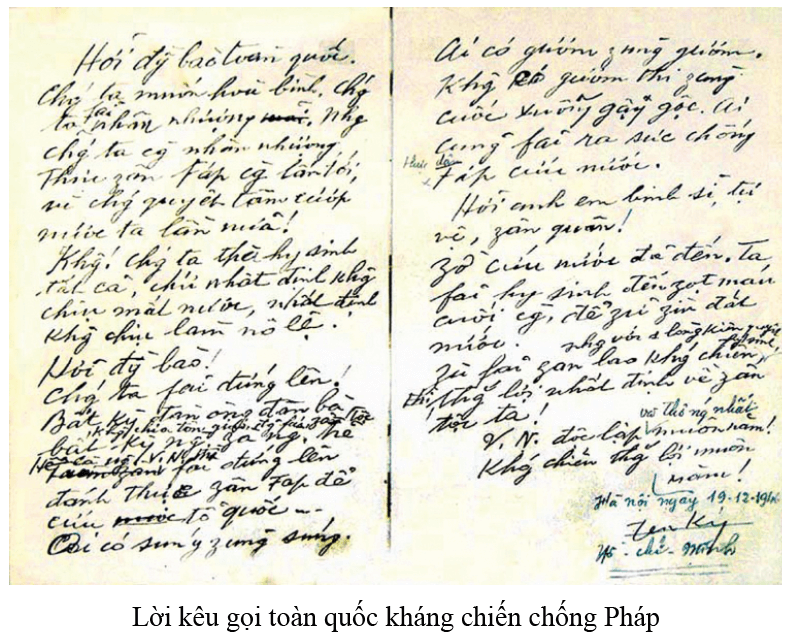 Hỡi đg̃ bào toàn quốc.
Chǵ ta muốn hoà bình, chǵ
ta fải nhân nhượng. Nhg
chǵ ta cg̀ nhân nhượng,
thực zân Fáp cg̀ lấn tới,
vì chǵ quyết tâm cướp
nước ta lần nữa!
Khg! Chǵ ta thà hy sinh
tất cả, chứ nhất định khg
chịu mất nước, nhất định
khg chịu làm nô lệ.
Hỡi đg̀ bào!
Chǵ ta fải đứng lên!
Bất kỳ đàn ông đàn bà
bất kỳ ng̀ già ng̀ trẻ
khg chia tôn záo, đg̉ fái, zân tộc
Hễ là ng̀ V.N. thì
fải đứng lên
đánh thực zân Fáp để
cứu nước tổ quốc
Ai có súng zùng súng.
Ai có gươm zùng gươm.
Khg có gươm thì zùng
cuốc xuổng gậy gộc. Ai
cũng fải ra sức chống
thực dân
Fáp cứu nước.
Hỡi anh em binh sĩ, tự
vệ, zân quân!
Zờ cứu nước đã đến. Ta
fải hy sinh đến zọt máu
cuối cg̀, để zữ zìn đất
nước.
Zù fải zan lao khǵ chiến,
nhg với 1 lòng kiên quyết
hy sinh,
thì thǵ lợi nhất định về zân
tộc ta!
và thống nhất
V.N. độc lập muôn năm!
Khǵ chiến thǵ lợi muôn
năm!
Hà nội ngày 19-12-1946
Hồ - chí - Minh
Lời kêu gọi toàn quốc kháng chiến chống Pháp